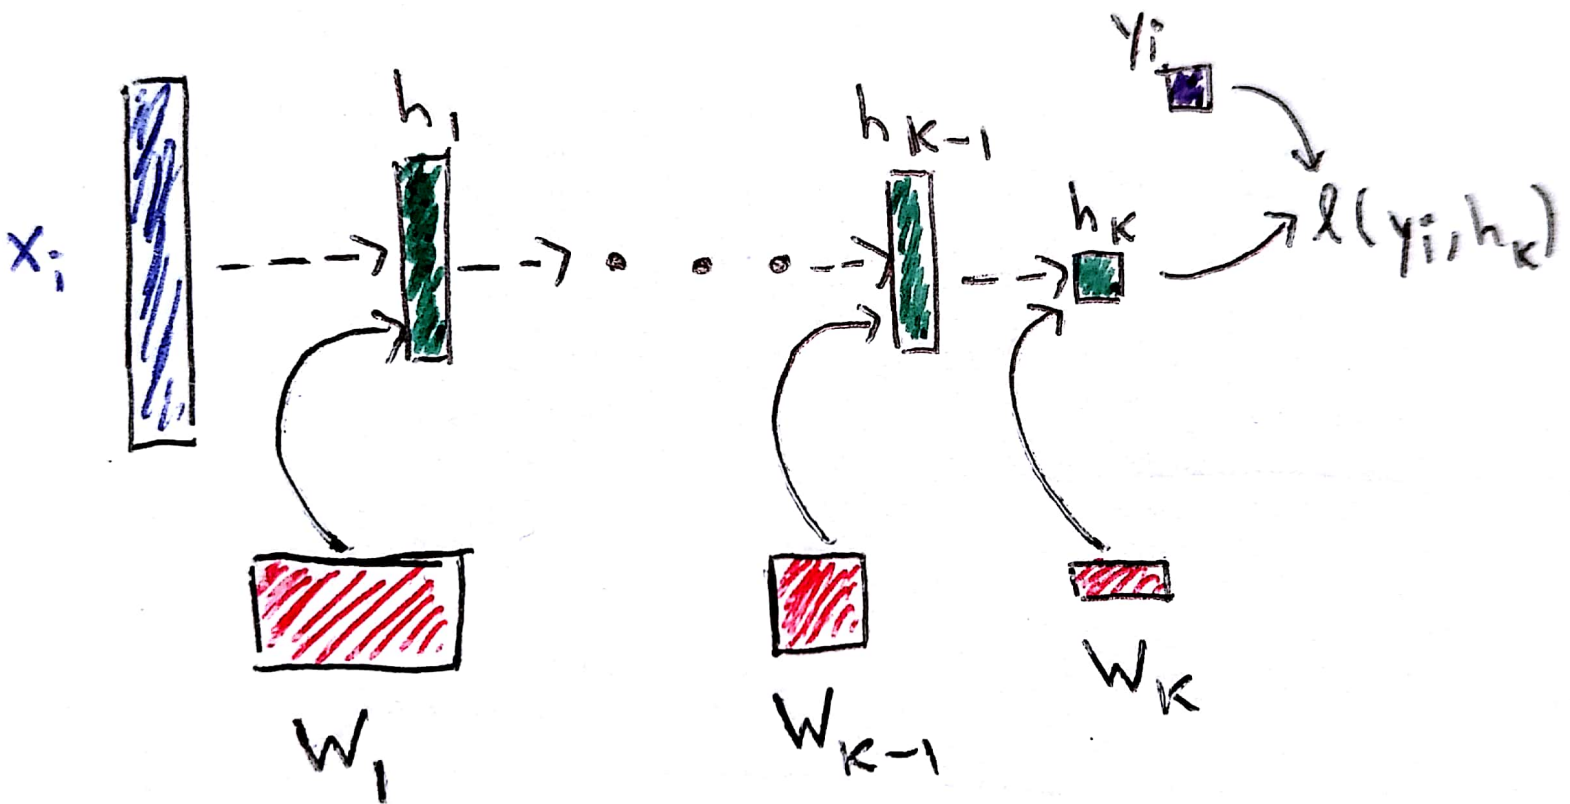 x_i
h_1
h_{K-1}
h_K
y_i
l(y_i, h_K)
W_1
W_{K-1}
W_K